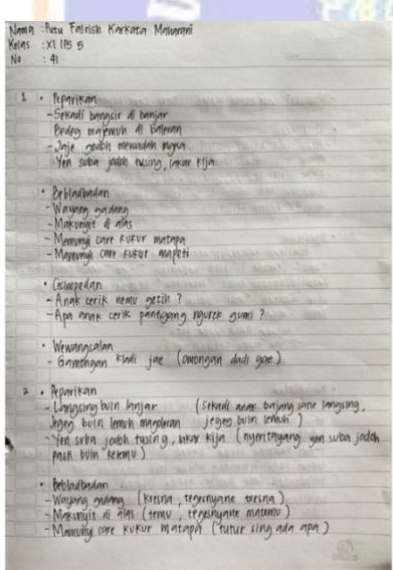 Nama : Putu Fairish Karkata Maharani
Kelas : XI IPS 5
No : 41
1 • Peparikan
- Sekadi bangsir di banjar
Bedeg majemuh di baleran
- Jaje godoh mewadah ingka
Yen suba jodoh tusing, lakar kija
• Bebladbadan
- Wayang gadang
- Makunyit di alas
- Memunyi care kukur matapa
- Mamunyi care kukur mapeti
• Cecimpedan
- Anak cerik nemu getih ?
- Apa anak cerik pantigang ngurek gumi ?
• Wewangsalan
- Gamongan kladi jae (omongan dadi gae)
2 • Peparikan
- Langsing buin lanjar (sekadi anak bajang sane langsing,
Jegeg buin lemuh magoleran jegeg buin lemuh)
- Yen suba jodoh tusing, lakar kija (nyeritayang yen suba jodoh
pasti buin ketemu)
• Bebladbadan
- Wayang gadang (kresna, tegesnyane tresna)
- Makunyit di alas (temu, tegesnyane matemu)
- Memunyi care kukur matapa (tutur sing ada apa)